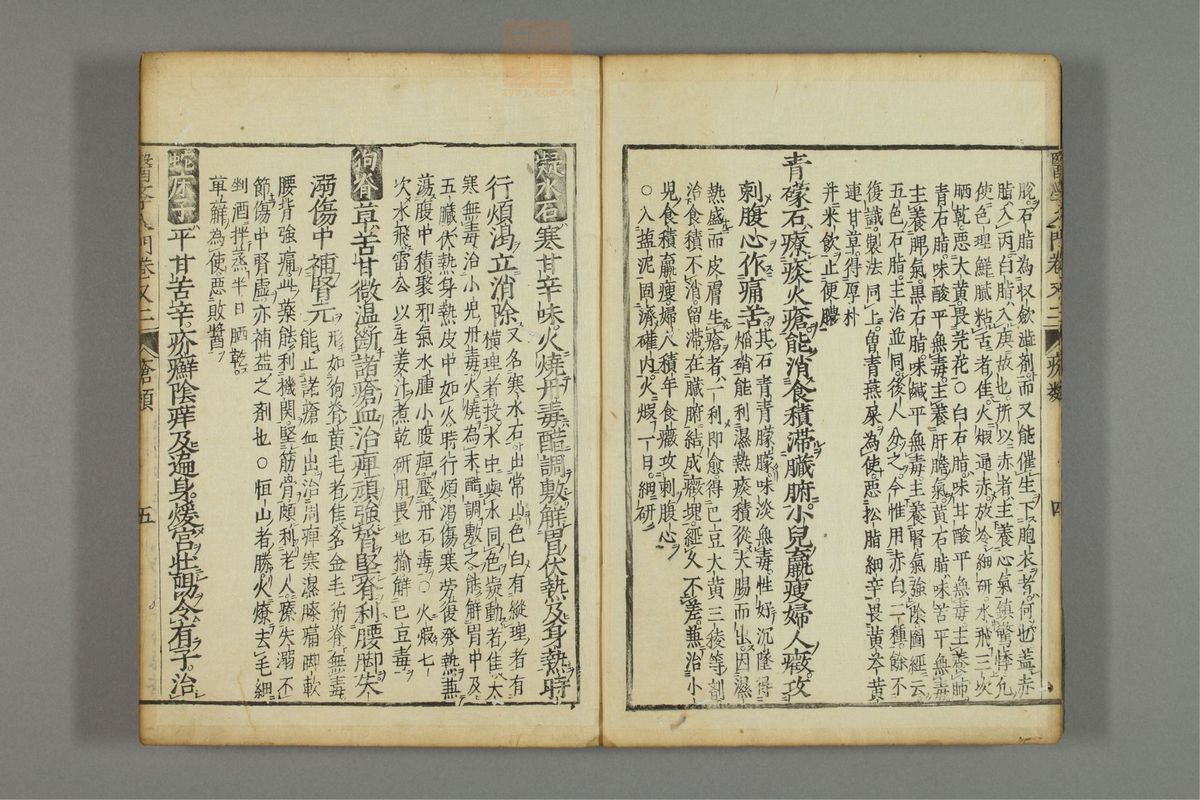 脫石脂為収飲溢剤而又能催生下胞衣者何也盖赤
脂入丙白脂入庚故也所以赤者主養心氣鎮驚悸九
使色理鮮膩粘舌者佳火煆通赤放冷細研水飛三次
晒乾惡大黃畏芫花○白石脂味甘酸平無毒主養肺
青石脂味酸平無毒主養肝膽氣黃石脂味苦平無毒
主養脾氣黑石脂味鹹平無毒主養腎氣強陰圖經云
五色石脂主治並同後人分之今惟用赤白二種餘不
復識製法同上曽青燕屎為使惡松脂細辛畏黃芩黃
連甘草得厚朴
并米飲止便膿
青礞石療痰火瘡能消食積滯臟腑小兒羸瘦婦人癥攻
刺腹心作痛苦其石青青朦朦味淡無毒性好沉墜得
焔硝能利濕熱痰積從大腸而出因濕
熱盛而皮膚生瘡者一利即愈得巴豆大黃三稜等劑
治食積不消留滯在臟腑結成癥塊經久不差兼治小
児食積羸瘦婦人積年食癥攻刺腹心
○入盐泥固濟確內火煆一日細研
醫學入門卷又二 瘡類 四
凝水石寒甘辛味火燒丹毒醋調敷解胃伏熱及身熱時
行煩渴立消除又名寒水石出常山色白有縱理者有
橫理者投水中與水同色炭動者佳大
寒無毒治小兒丹毒火燒為末醋調敷之能解胃中及
五臟伏熱身熱皮中如火時行煩渴傷寒勞復發熱兼
蕩腹中積聚邪氣水腫小腹痺壓丹石毒○火煆七
次水飛雷公以生姜汁煮乾研用畏地榆解巴豆毒
狗脊草苦甘微温斷諸瘡血治痺頑強督堅脊利腰脚失
溺傷中補腎元形如狗脊黃毛者佳名金毛狗脊無毒
能止諸瘡血出治周痺寒濕膝痛脚軟
腰背強痛此藥能利機関堅筋骨頗利老人療失溺不
節傷中腎虛亦補益之剤也○恒山者勝火燎去毛細
剉酒拌蒸半日晒乾
萆薢為使惡敗醬
蛇床子平甘苦辛疥癬陰痒及遍身煖宮壯陽令有子治
醫學入門卷又二 瘡類 五